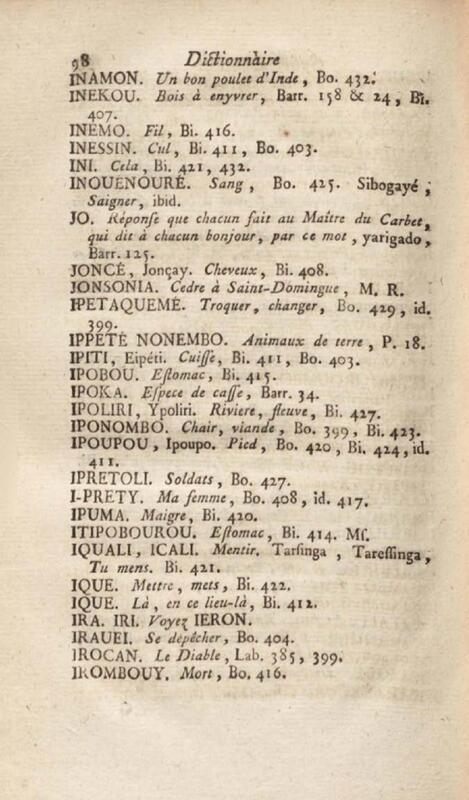 98 Dictionnaire
INAMON. Un bon poulet d'Inde, Bo. 432.
INEKOU. Bois à enyvrer, Barr. 158 & 24, Bi.
407.
INEMO. Fil, Bi. 416.
INESSIN. Cul, Bi. 411, Bo. 403.
INI. Cela, Bi. 421, 432.
INOUENOURÉ. Sang, Bo. 425. Sibogayé,
Saigner, ibid.
JO. Réponſe que chacun fait au Maître du Carbet,
qui dit à chacun bonjour, par ce mot, yarigado,
Barr. 125.
JONCÉ, Jonçay. Cheveux, Bi. 408.
JONSONIA. Cedre à Saint-Domingue, M. R.
IPETAQUEMÉ. Troquer, changer, Bo. 429, id.
399.
IPPETÉ NONEMBO. Animaux de terre, P. 18.
IPITI, Eipéti. Cuiſſe, Bi. 411, Bo. 403.
IPOBOU. Eſtomac, Bi. 415.
IPOKA. Eſpece de caſſe, Barr. 34.
IPOLIRI, Ypoliri. Riviere, fleuve, Bi. 427.
IPONOMBO. Chair, viande, Bo. 399, Bi. 423.
IPOUPOU, Ipoupo. Pied, Bo. 420, Bi. 424, id.
411.
IPRETOLI. Soldats, Bo. 427.
I-PRETY. Ma femme, Bo. 408, id. 417.
IPUMA. Maigre, Bi. 420.
ITIPOBOUROU. Eſtomac, Bi. 414. Mſ.
IQUALI, ICALI. Mentir. Tarſinga, Tareſſinga,
Tu mens. Bi. 421.
IQUE. Mettre, mets, Bi. 422.
IQUE. Là, en ce lieu-là, Bi. 412.
IRA. IRI. Voyez IERON.
IRAUEI. Se dépêcher, Bo. 404.
IROCAN. Le Diable, Lab. 385, 399.
IROMBOUY. Mort, Bo. 416.